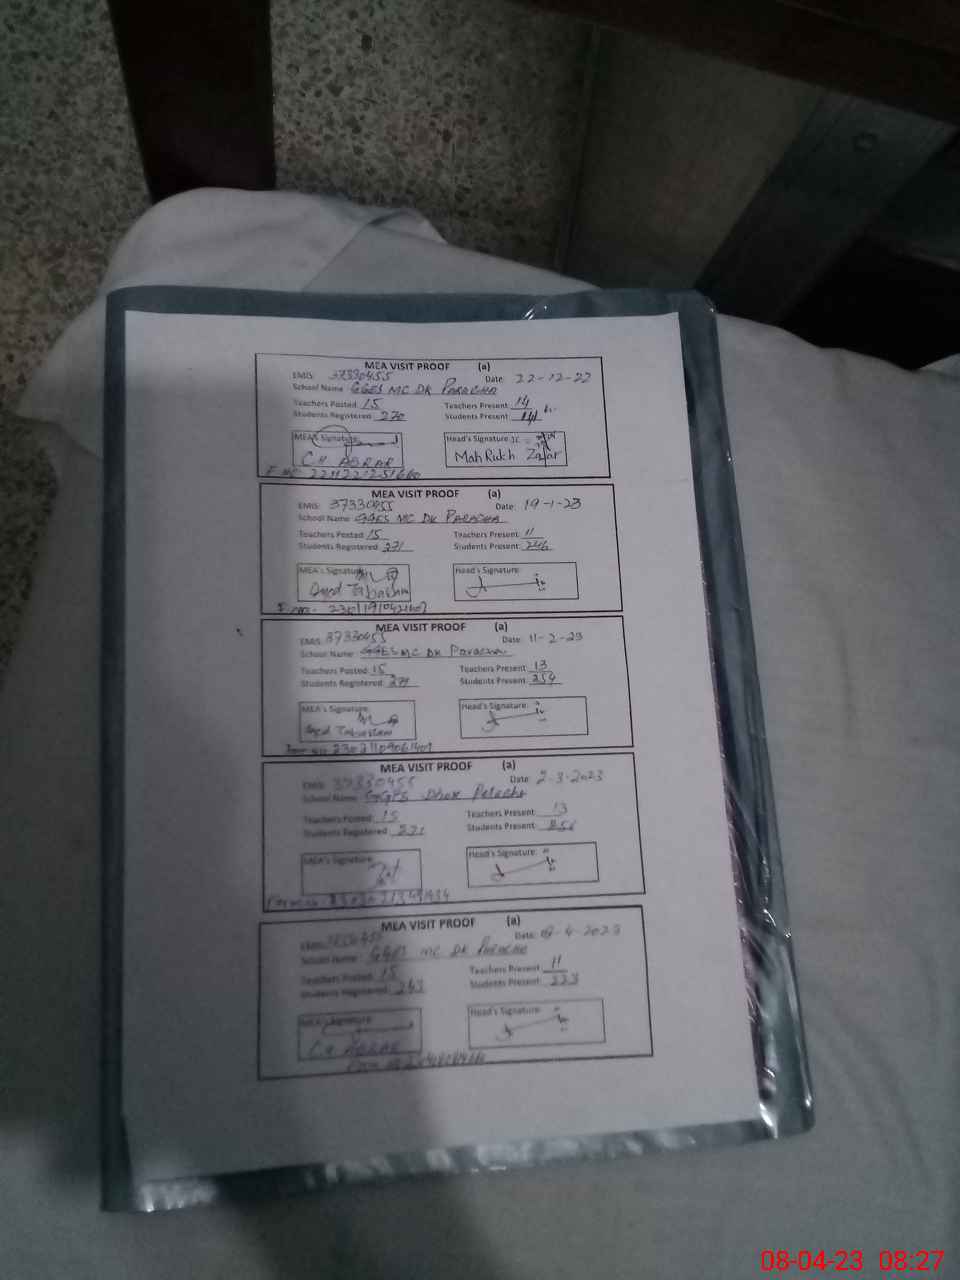 MEA VISIT PROOF (a)
EMIS: 37330455 Date: 22-12-22
School Name GGES MC DK PARACHA
Teachers Posted 15 Teachers Present: 14
Students Registered: 270 Students Present:
MEA's Signature: Head's Signature:
CH ABRAR Mah Rukh Zafar
MEA VISIT PROOF (a)
EMIS: 37330455 Date: 19-1-23
School Name GGES MC DK PARACHA
Teachers Posted 15 Teachers Present: 11
Students Registered 271 Students Present: 246
MEA's Signature: Head's Signature:
Tabassam
MEA VISIT PROOF (a)
EMIS: 37330455 Date: 11-2-23
School Name: GGES MC DK Paracha
Teachers Posted: 15 Teachers Present: 13
Students Registered: 271 Students Present: 254
MEA's Signature: Head's Signature:
Tabassam
MEA VISIT PROOF (a)
EMIS: 37330455 Date: 2-3-2023
School Name: GGES
Teachers Posted: 15 Teachers Present: 13
Students Registered: 271 Students Present: 256
MEA's Signature: Head's Signature:
MEA VISIT PROOF (a)
EMIS: Date: 08-4-2023
School Name: GGES MC DK PARACHA
Teachers Posted: 15 Teachers Present: 11
Students Registered: 263 Students Present: 233
MEA's Signature: Head's Signature:
CH ABRAR
08-04-23 08:27